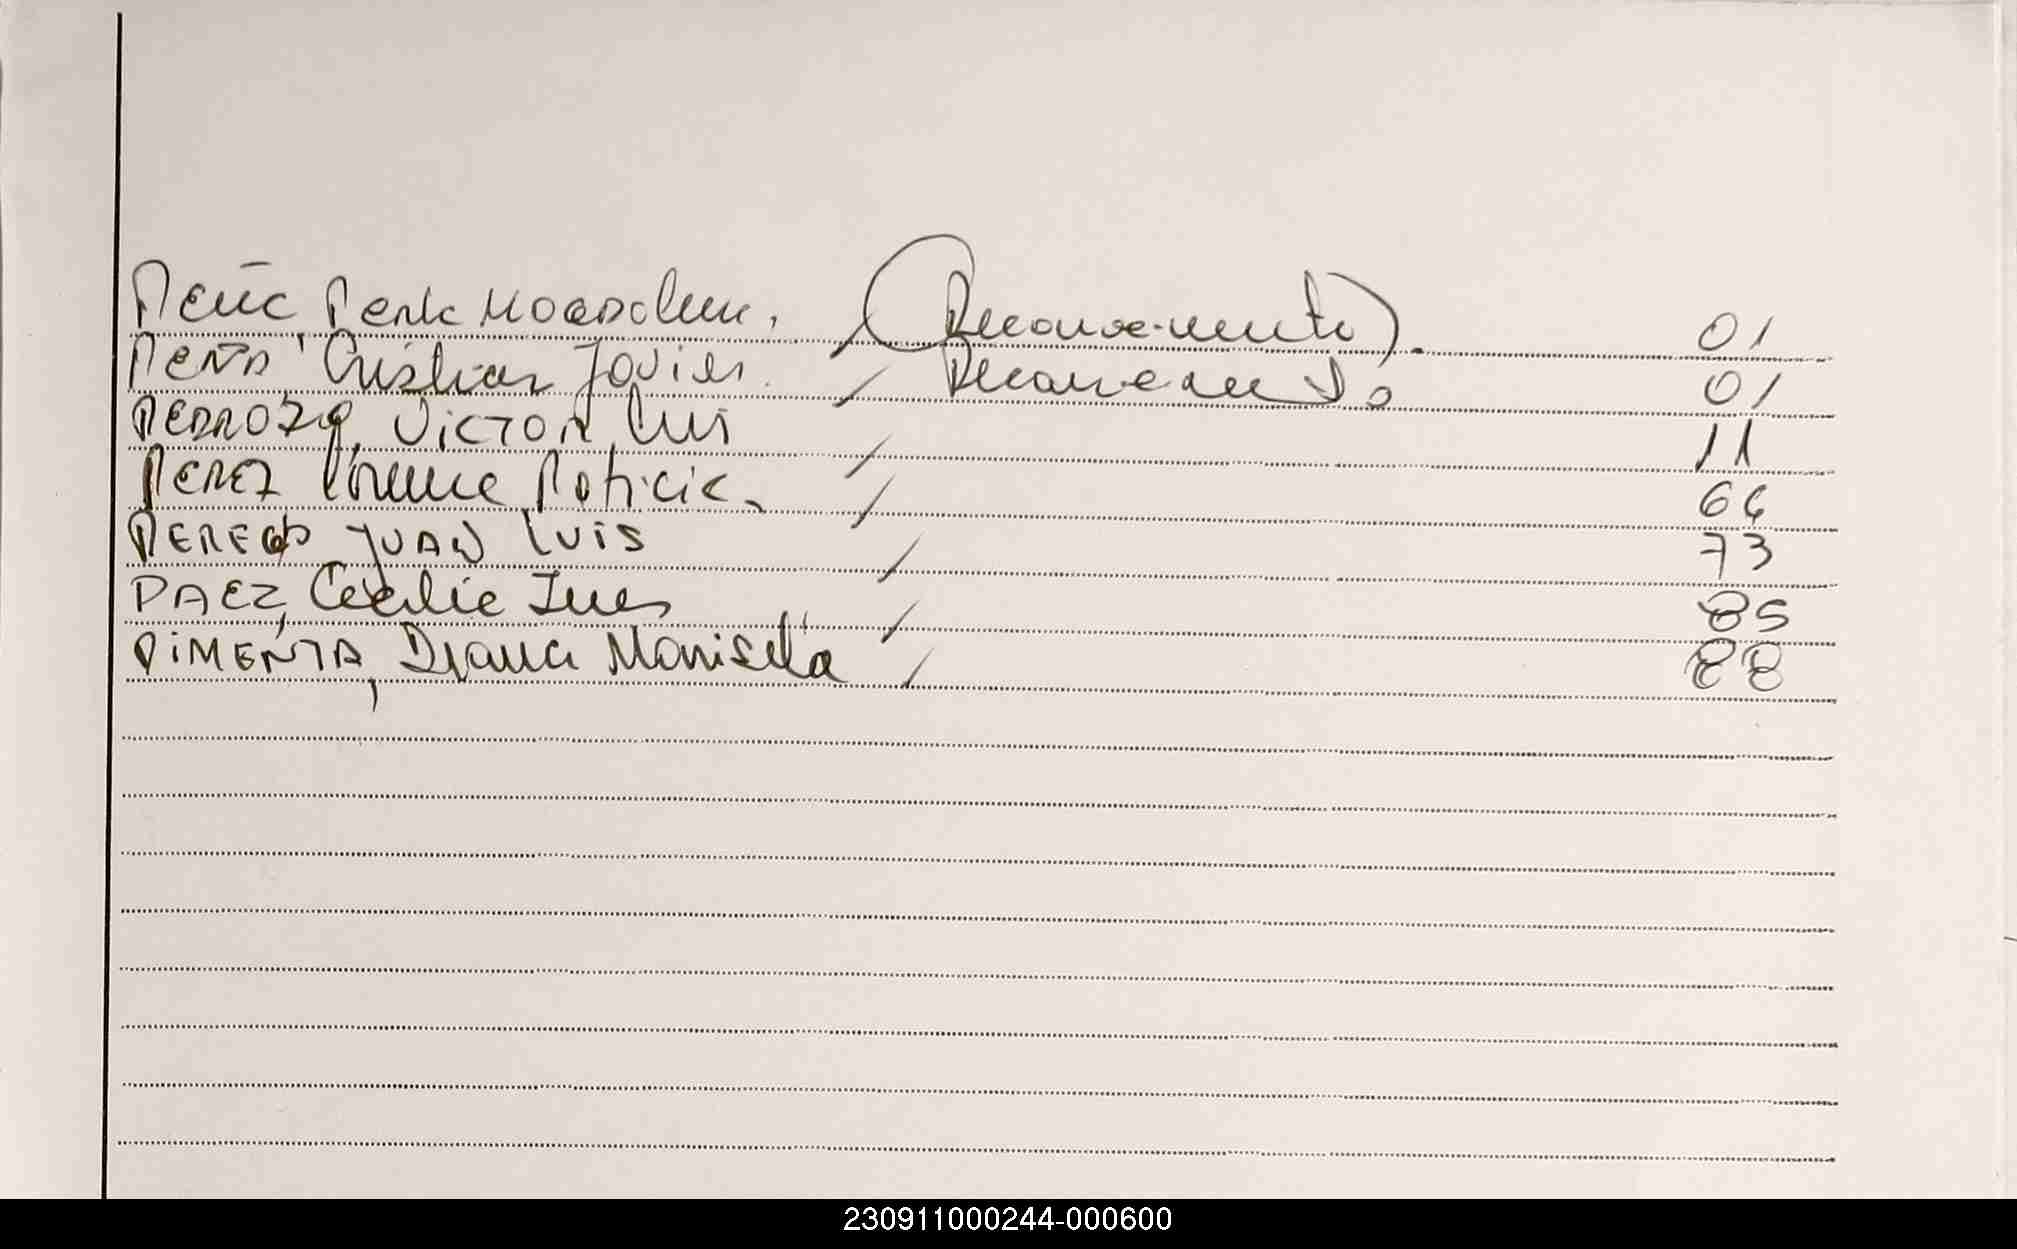 Peña Perla Magdalena, (Reconocimiento). 01
PEÑA, Cristian Javier. Reconocimiento 01
PEDROZO, VICTOR Luis 11
PEREZ Lorena Patricia. 66
PEREGO JUAN LUIS 73
PAEZ, Cecilia Ines 85
PIMENTA, Diana Marisela 88
230911000244-000600